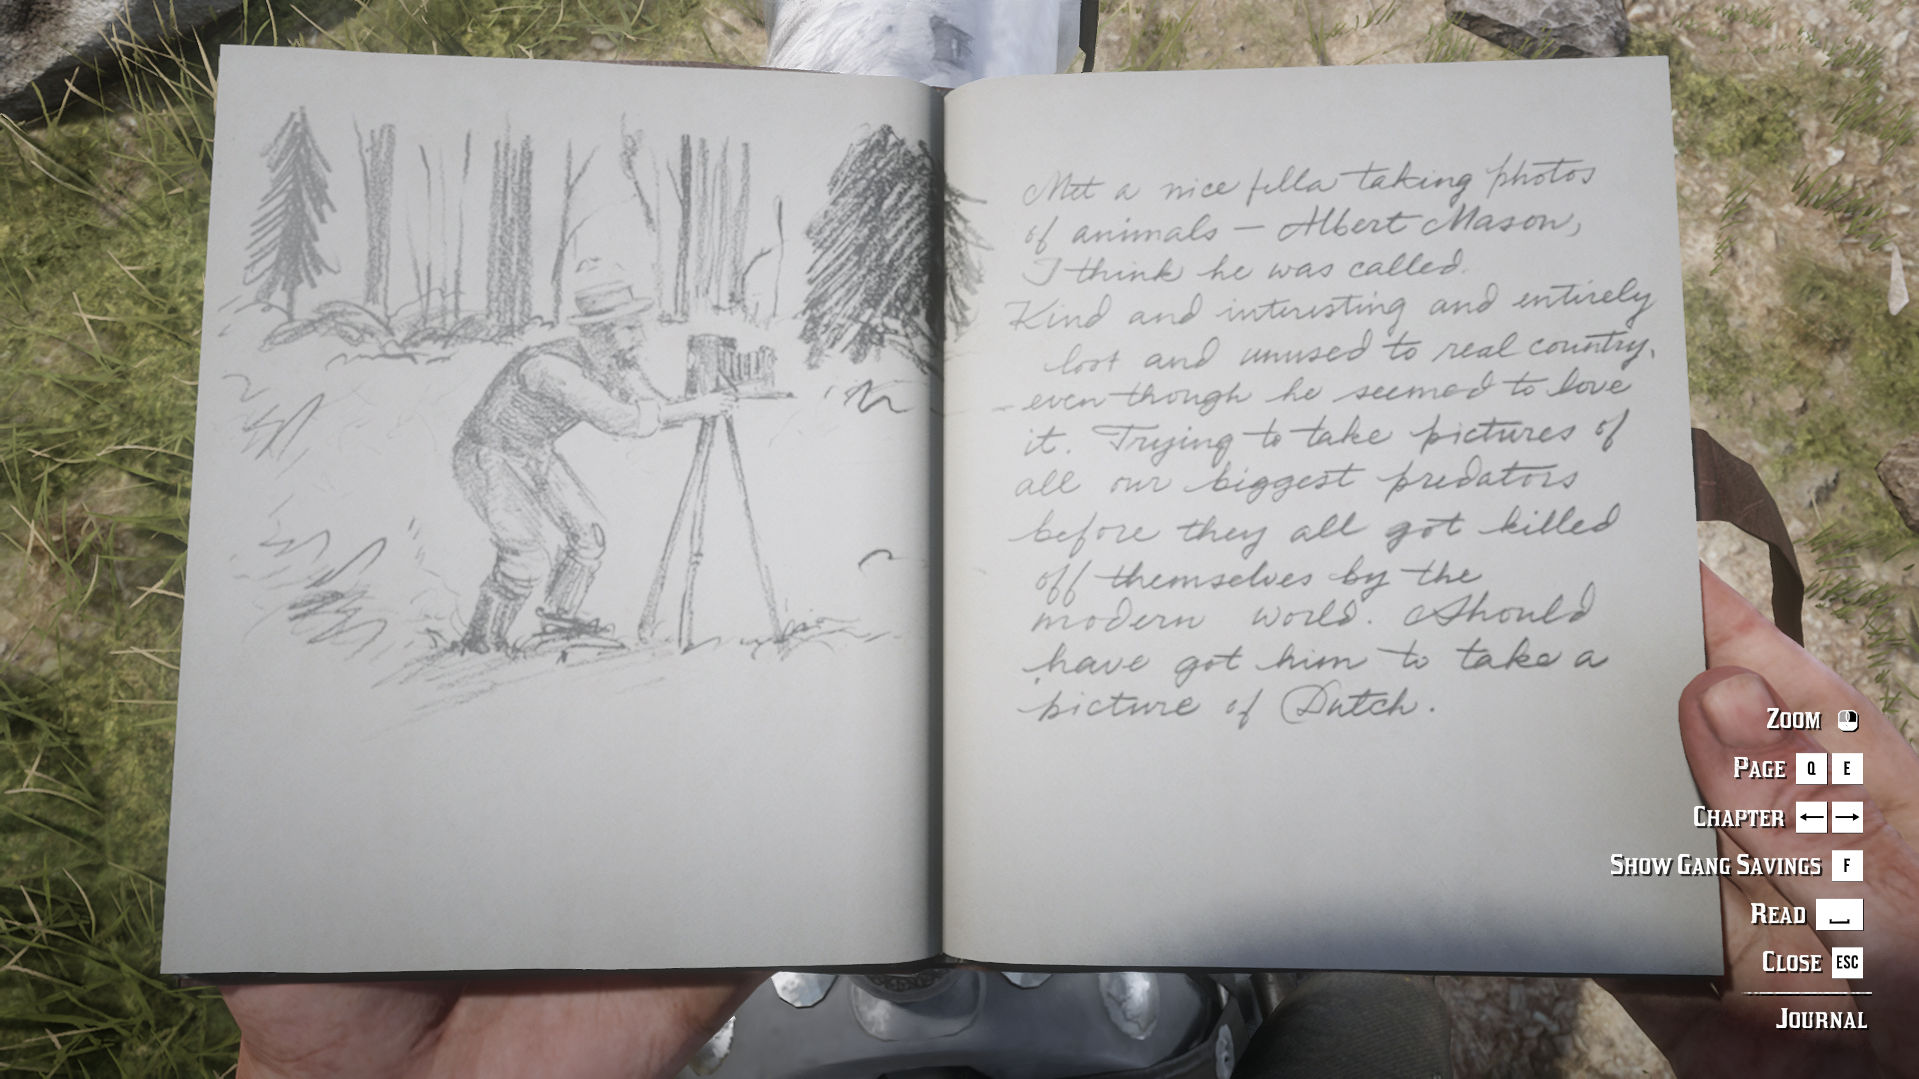 Met a nice fella taking photos
of animals – Albert Mason,
I think he was called.
Kind and interesting and entirely
lost and unused to real country,
even though he seemed to love
it. Trying to take pictures of
all our biggest predators
before they all got killed
off themselves by the
modern world. Should
have got him to take a
picture of Dutch.
ZOOM
PAGE Q E
CHAPTER ← →
SHOW GANG SAVINGS F
READ
CLOSE ESC
JOURNAL